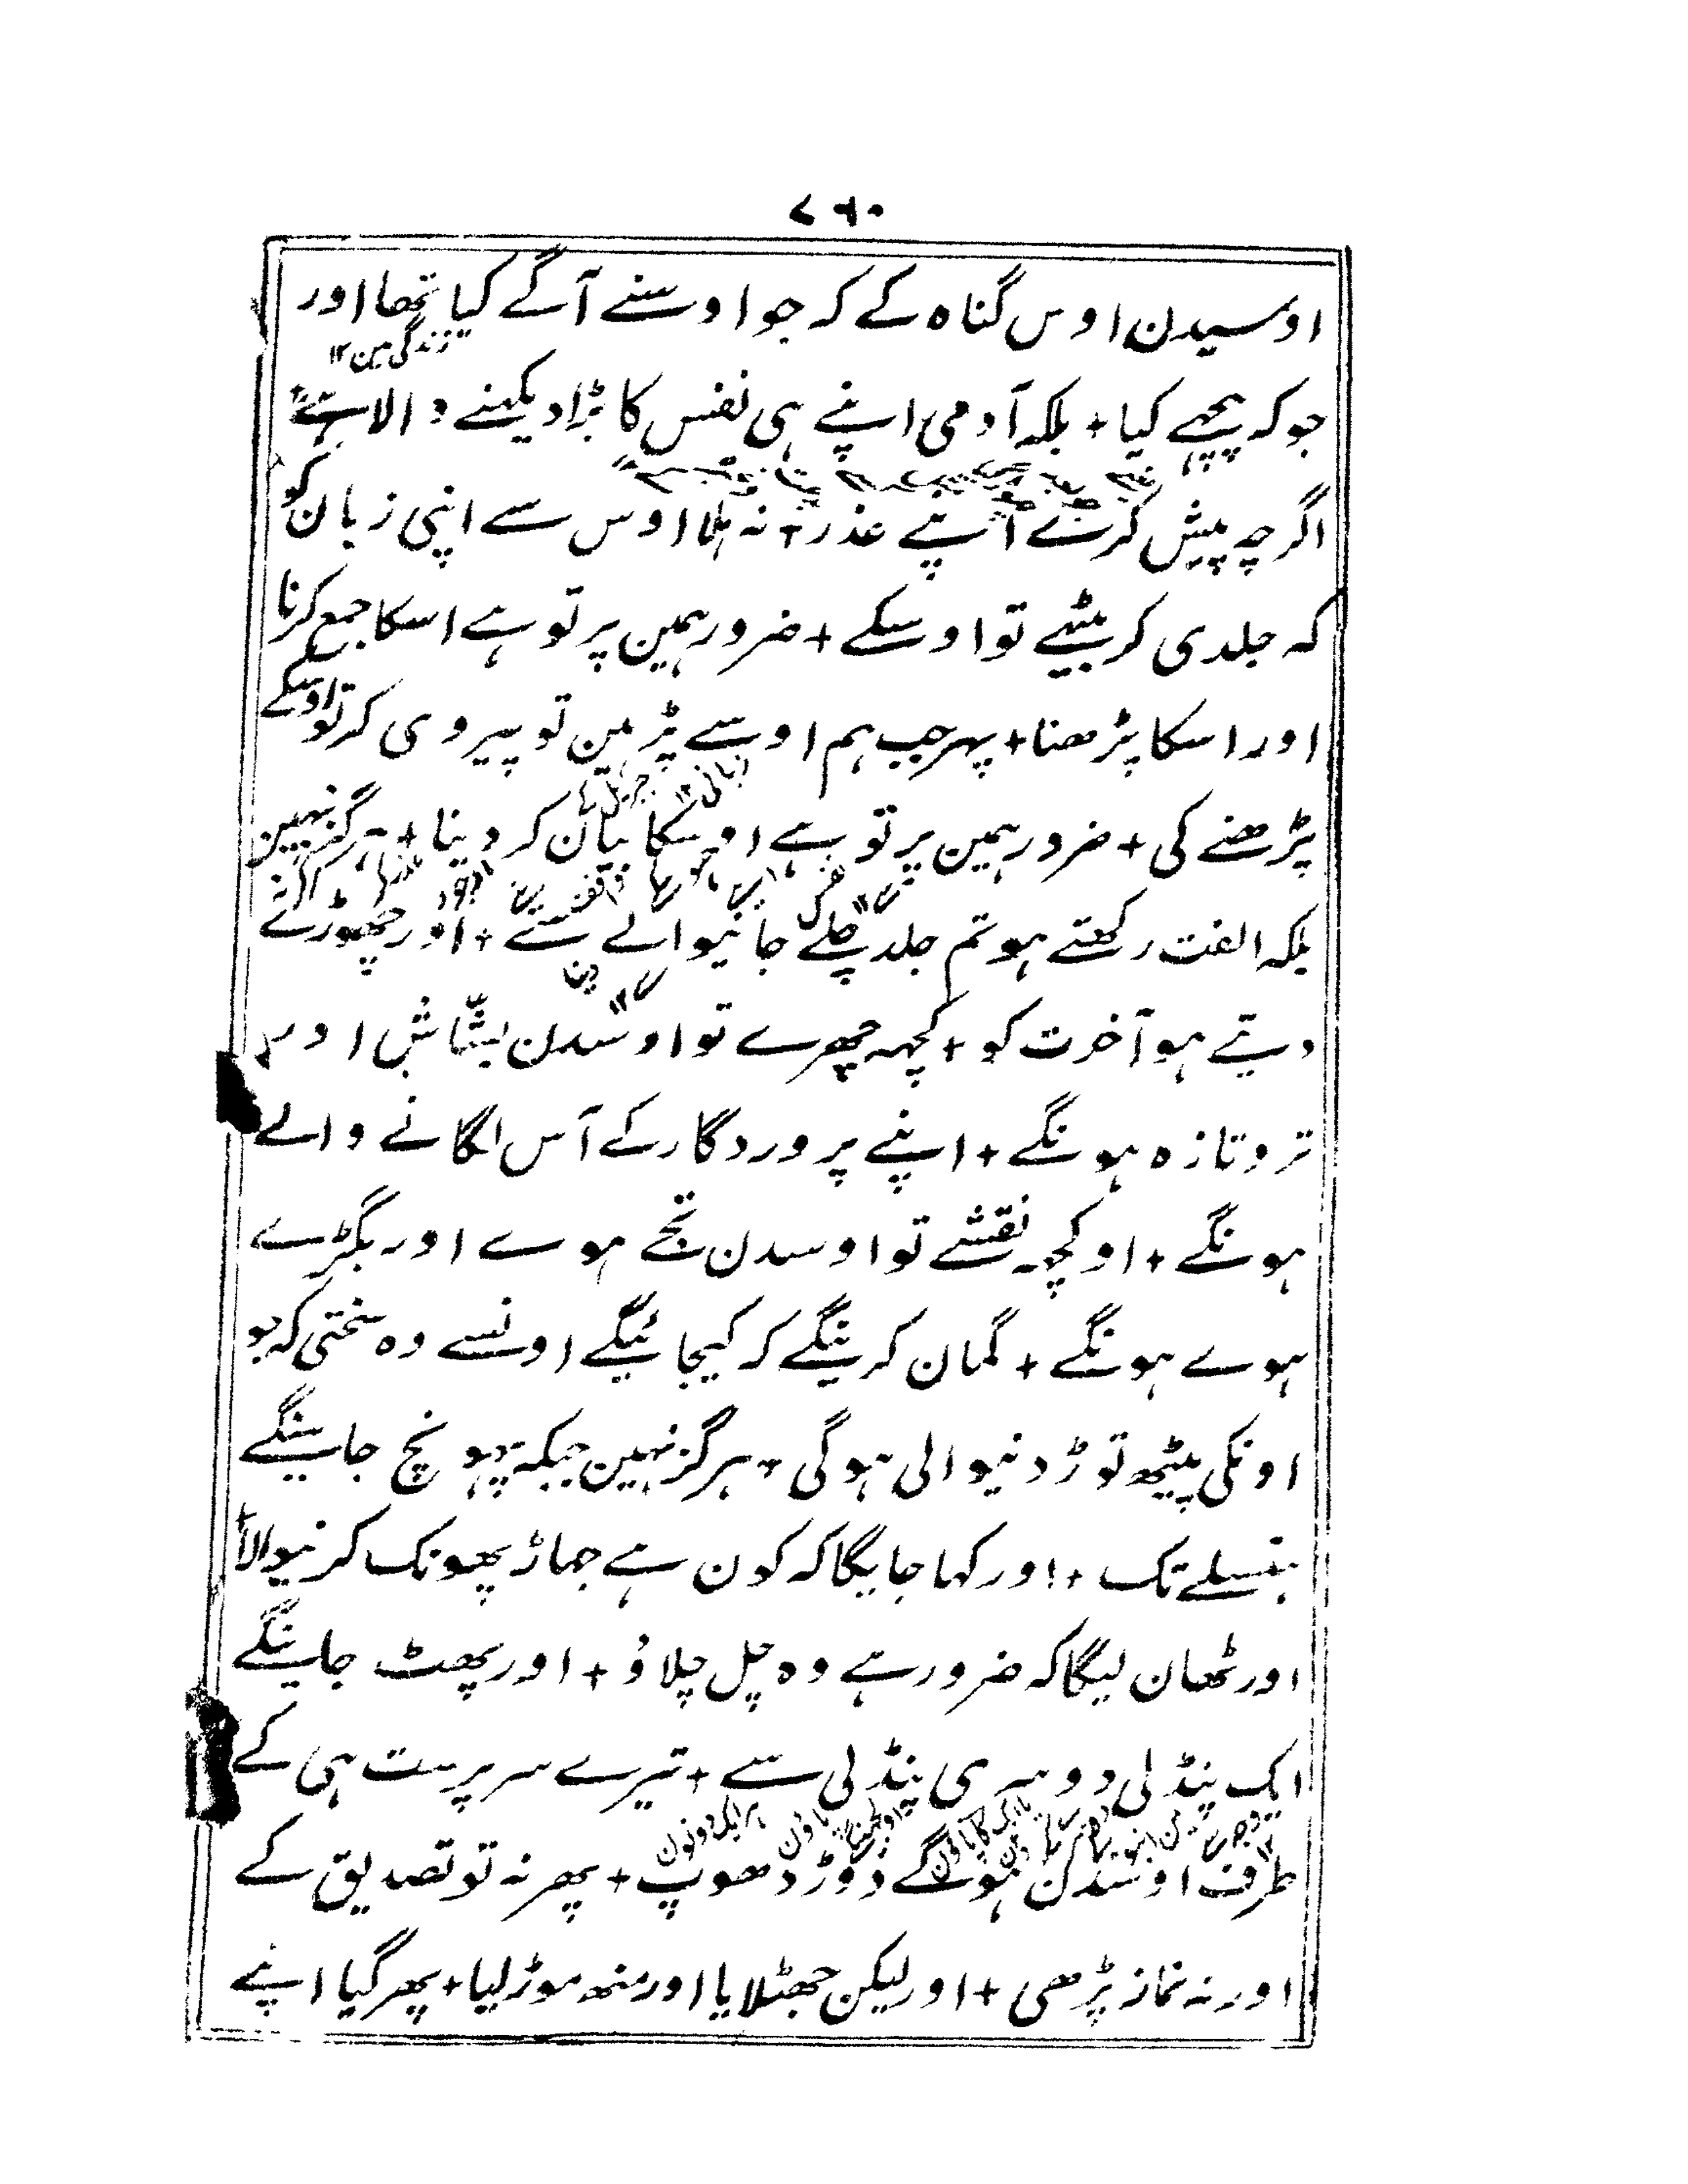 ۷۶۰
اوسیدن اوس گناہ کے کہ جو اوسنے آگے کیا تھا اور
زندگی مین ۱۲
جو کہ پیچھے کیا + بلکہ آدمی اپنے ہی نفس کا بڑا دیکہنے والا ہے
اگرچہ پیش کرے اپنے عذر + نہ ہلا اوس سے اپنی زبان کو
کہ جلدی کر بیٹھے تو اوسکے + ضرور ہمین پر تو ہے اسکا جمع کرنا
اور اسکا پڑھنا + پہر جب ہم اوسے پڑہین تو پیروی کر تو اوسکے
پڑھنے کی + ضرور ہمین پر تو ہے اوسکا بیان کر دینا + ہرگز نہین
بلکہ الفت رکھتے ہو تم جلد چلے جانیوالے سے + اور چھوڑے
دیتے ہو آخرت کو + کچہہ چھرے تو اوسدن بشّاش اور
تر و تازہ ہونگے + اپنے پروردگار کے آس لگانے والے
ہونگے + او کچھہ نقشے تو اوسدن تجے ہوے اور بگڑے
ہوے ہونگے + گمان کرینگے کہ کیجائینگے اونسے وہ سختی کہ جو
اونکی پیٹھ توڑ دنیوالی ہوگی + ہرگز نہین جبکہ پہونچ جاینگے
ہنسلے تک + اور کہا جایگا کہ کون ہے جہاڑ پھونک کرنیوالا +
اور ٹھان لیگا کہ ضرور ہے وہ چل چلاؤ + اور پھٹ جاینگے
ایک پنڈلی دوسری پنڈلی سے + تیرے سرپرست ہی کے
طرف اوسدن ہوگے دوڑ دھوپ + پھر نہ تو تصدیق کے
اور نہ نماز پڑھی + اور لیکن جھٹلایا اور منھ موڑ لیا + پھر گیا اپنے